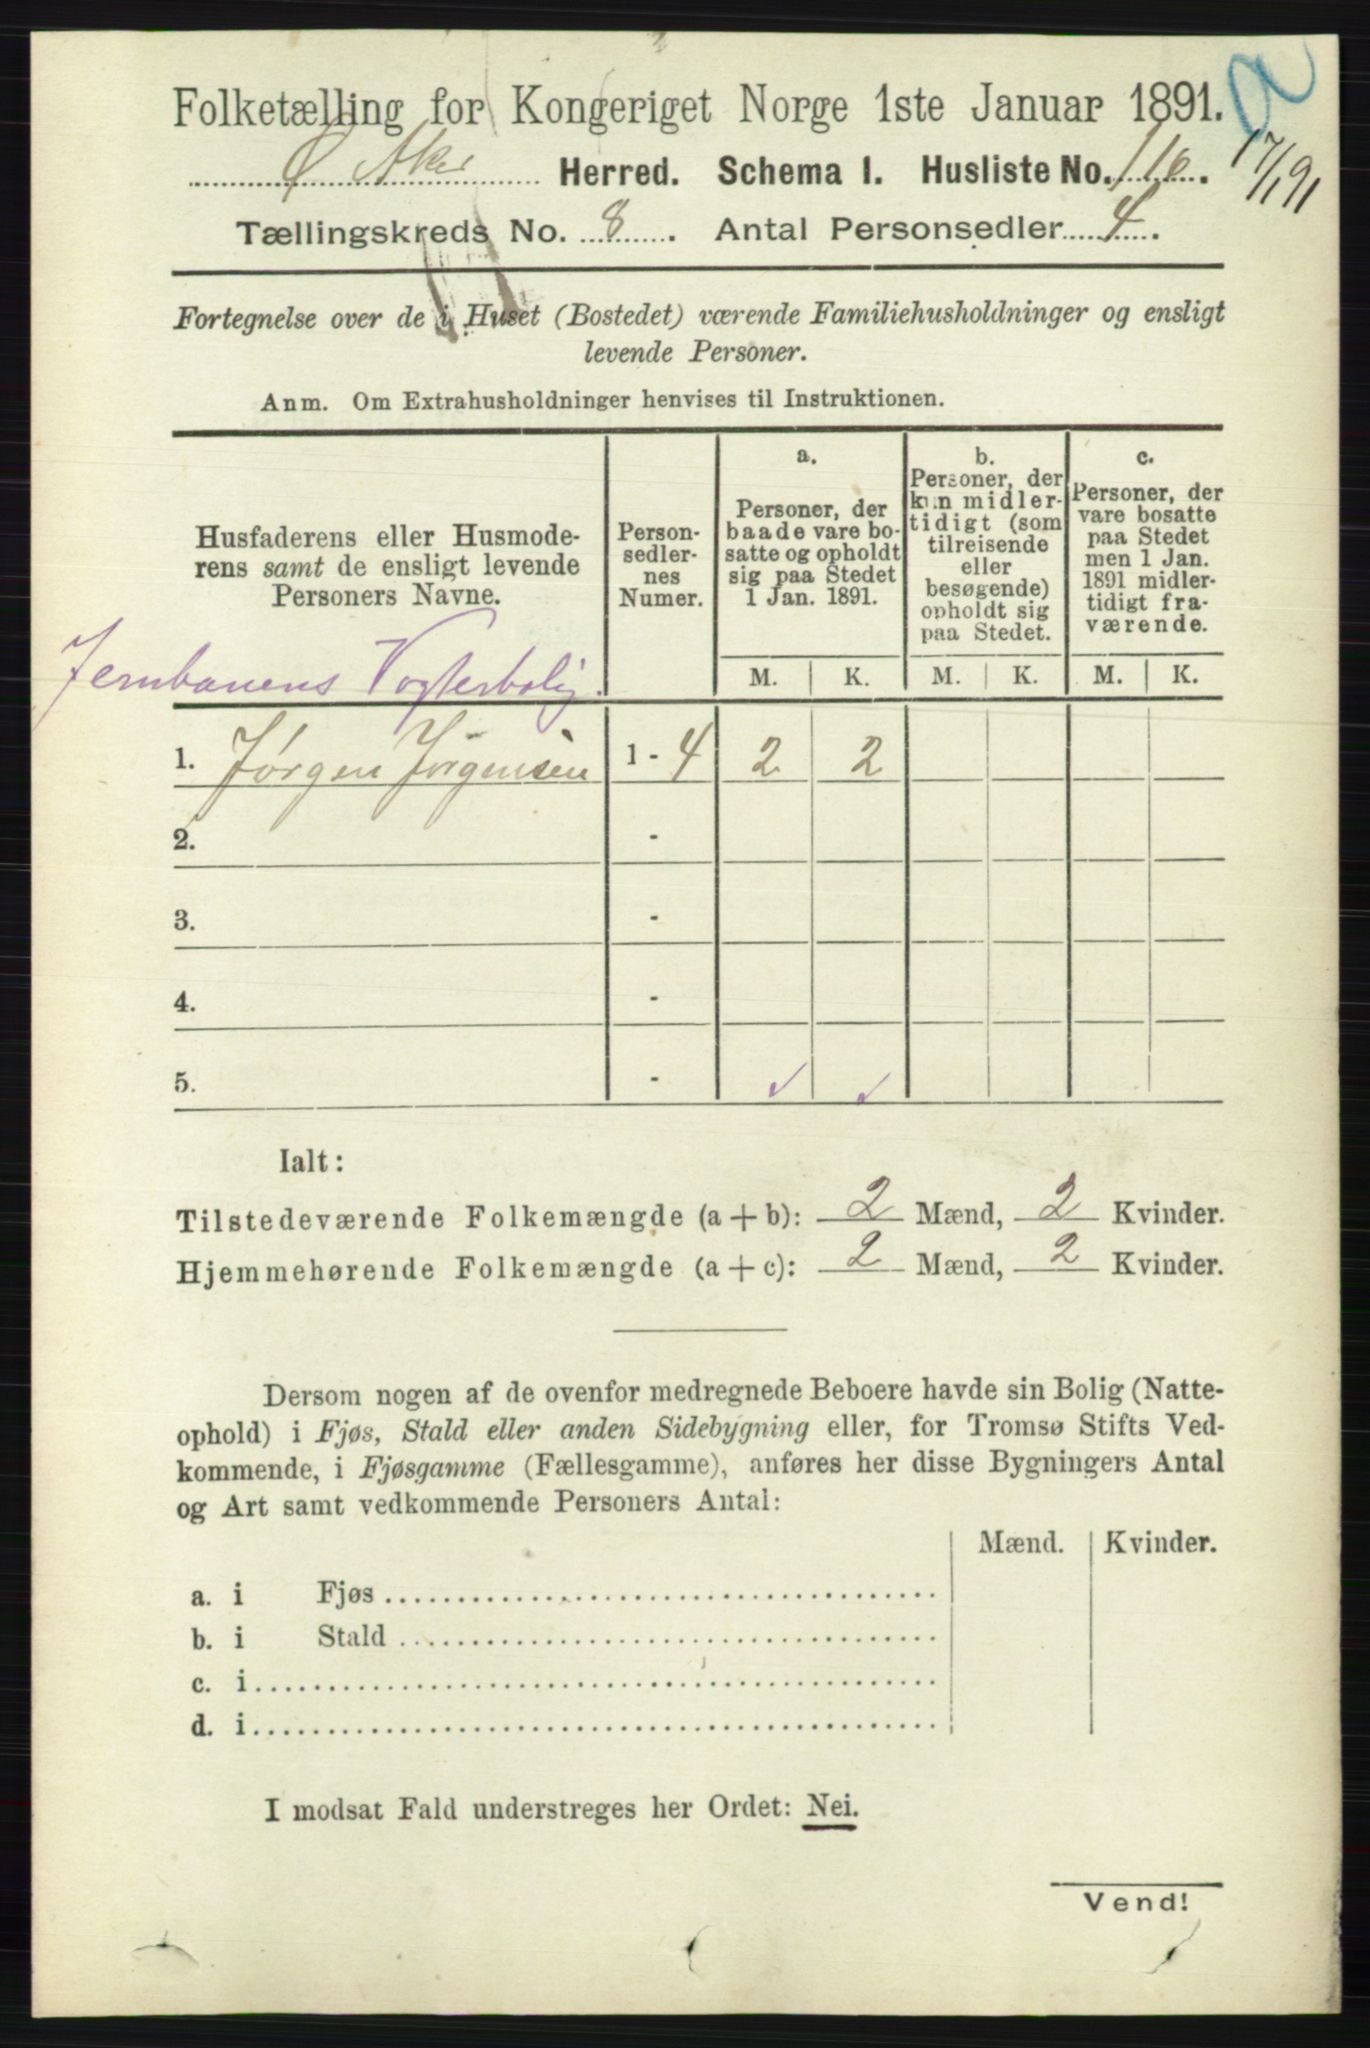 Folketælling for Kongeriget Norge 1ste Januar 1891.
Ø Aker Herred. Schema 1. Husliste No. 116. 17/1 91
Tællingskreds No. 8. Antal Personsedler 4.
Fortegnelse over de i Huset (Bostedet) værende Familiehusholdninger og ensligt
levende Personer.
Anm. Om Extrahusholdninger henvises til Instruktionen.
Husfaderens eller Husmode-
rens samt de ensligt levende
Personers Navne.
Person-
sedler-
nes
Numer.
a.
Personer, der
baade vare bo-
satte og opholdt
sig paa Stedet
1 Jan. 1891.
b.
Personer, der
kun midler-
tidigt (som
tilreisende
eller
besøgende)
opholdt sig
paa Stedet.
c.
Personer, der
vare bosatte
paa Stedet
men 1 Jan.
1891 midler-
tidigt fra-
værende.
M. K. M. K. M. K.
Jernbanens Vogterbolig.
1. Jørgen Jørgensen 1 - 4 2 2
2. -
3. -
4. -
5. - ✓ ✓
Ialt:
Tilstedeværende Folkemængde (a + b): 2 Mænd, 2 Kvinder.
Hjemmehørende Folkemængde (a + c): 2 Mænd, 2 Kvinder.
Dersom nogen af de ovenfor medregnede Beboere havde sin Bolig (Natte-
ophold) i Fjøs, Stald eller anden Sidebygning eller, for Tromsø Stifts Ved-
kommende, i Fjøsgamme (Fællesgamme), anføres her disse Bygningers Antal
og Art samt vedkommende Personers Antal:
Mænd. Kvinder.
a. i Fjøs
b. i Stald
c. i
d. i
I modsat Fald understreges her Ordet: Nei.
Vend!